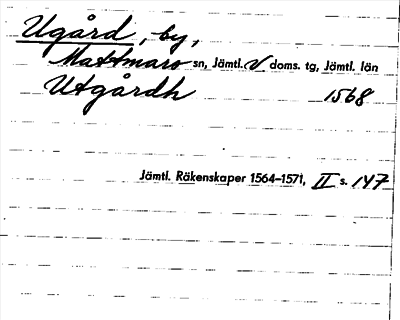 Ugård, by,
Mattmaro sn, Jämtl. V doms. tg, Jämtl. län
Utgårdh 1568
Jämtl. Räkenskaper 1564-1571, II s. 147